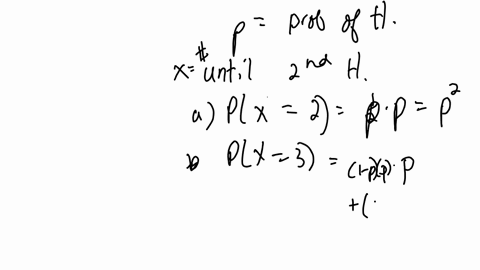 p = prob of H.
x = # until 2nd H.
a) P(x = 2) = p · p = p²
b P(X = 3) = (1-p)(p) · p
+ (